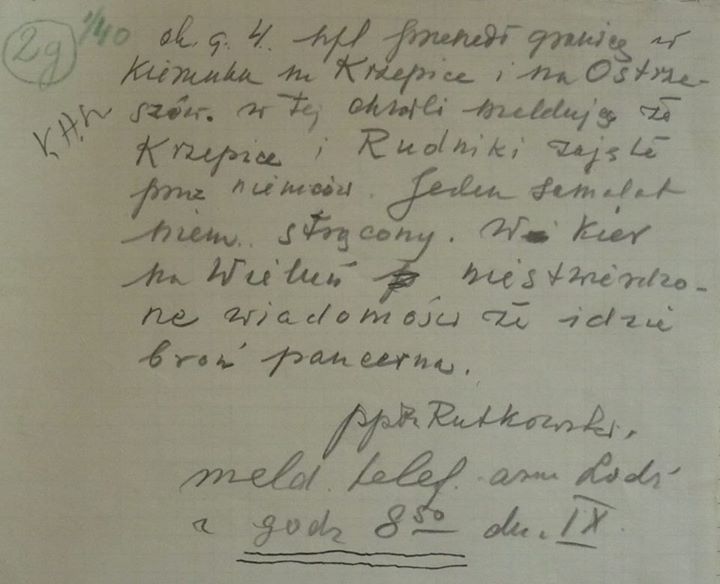 2g
1/40
ok. g. 4. npl przeszedł granicę w
kierunku na Krzepice i na Ostrze-
szów. w tej chwili meldują że
Krzepice i Rudniki zajęte
przez niemców. Jeden samolot
niem. strącony. W kier
na Wieluń niestwierdzo-
ne wiadomości że idzie
broń pancerna.
ppłk Rutkowski.
meld. telef. arm Łódź
z godz 8 50 dn. IX.